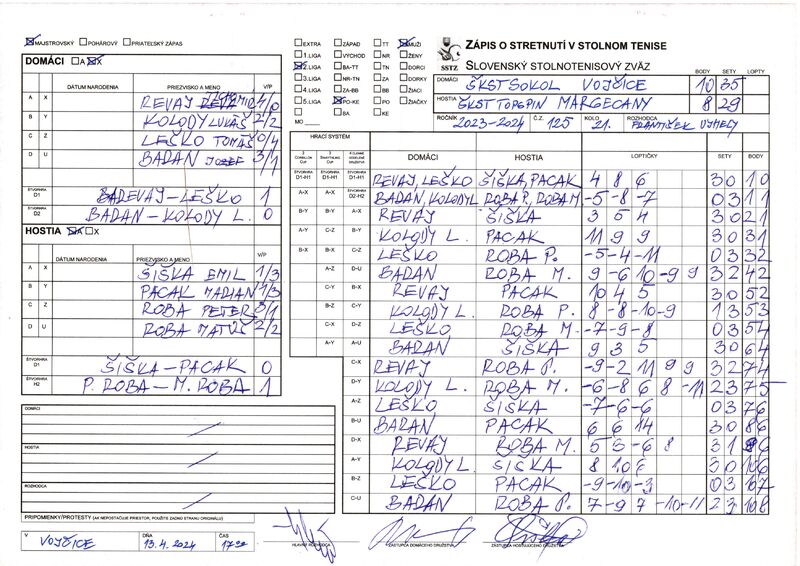 MAJSTROVSKÝ POHÁROVÝ PRIATEĽSKÝ ZÁPAS
DOMÁCI A X
DÁTUM NARODENIA PRIEZVISKO A MENO V/P
A X REVAY 4/0
B Y KOLODY LUKÁŠ 2/2
C Z LEŠKO TOMÁŠ 0/4
D U BADAN JOZEF 3/1
ŠTVORHRA D1 REVAY-LEŠKO 1
ŠTVORHRA D2 BADAN-KOLODY L. 0
HOSTIA A X
DÁTUM NARODENIA PRIEZVISKO A MENO V/P
A X ŠIŠKA EMIL 1/3
B Y PACAK MARIAN 1/3
C Z ROBA PETER 3/1
D U ROBA MATÚŠ 2/2
ŠTVORHRA D1 ŠIŠKA-PACAK 0
ŠTVORHRA H2 P. ROBA-M. ROBA 1
DOMÁCI
HOSTIA
ROZHODCA
PRIPOMIENKY/PROTESTY (AK NEPOSTAČUJE PRIESTOR, POUŽITE ZADNÚ STRANU ORIGINÁLU)
V VOJČICE DŇA 13.4.2024 ČAS
EXTRA ZÁPAD TT MUŽI
1.LIGA VÝCHOD NR ŽENY
2.LIGA BA-TT TN DORCI
3.LIGA NR-TN ZA DORKY
4.LIGA ZA-BB BB ŽIACI
5.LIGA PO-KE PO ŽIAČKY
BA KE
MO
SSTZ
ZÁPIS O STRETNUTÍ V STOLNOM TENISE
SLOVENSKÝ STOLNOTENISOVÝ ZVÄZ
BODY SETY LOPTY
DOMÁCI ŠKST SOKOL VOJČICE 10 35
HOSTIA ŠKST TOPSPIN MARGECANY 8 29
ROČNÍK 2023-2024 Č.Z. 125 KOLO 21. ROZHODCA FRANTIŠEK VYHELY
HRACÍ SYSTÉM
DOMÁCI HOSTIA LOPTIČKY SETY BODY
ŠTVORHRA D1-H1 ŠTVORHRA D1-H1 ŠTVORHRA D1-H1 REVAY, LEŠKO ŠIŠKA, PACAK 4 8 6 3 0 1 0
A-X A-X ŠTVORHRA D2-H2 BADAN, KOLODY L. ROBA P., ROBA M. -5 -8 -7 0 3 1 1
B-Y B-Y A-X REVAY ŠIŠKA 3 5 4 3 0 2 1
A-Y C-Z B-Y KOLODY L. PACAK 11 9 9 3 0 3 1
B-X B-X C-Z LEŠKO ROBA P. -5 -4 -11 0 3 3 2
A-Z D-U BADAN ROBA M. 9 -6 10 -9 9 3 2 4 2
C-Y B-X REVAY PACAK 10 4 5 3 0 5 2
B-Z C-Y KOLODY L. ROBA P. 8 -8 -10 -9 1 3 5 3
C-X D-Z LEŠKO ROBA M. -7 -9 -8 0 3 5 4
A-Y A-U BADAN ŠIŠKA 9 3 5 3 0 6 4
C-X REVAY ROBA P. -9 -2 11 9 9 3 2 7 4
D-Y KOLODY L. ROBA M. -6 -8 6 8 -11 2 3 7 5
A-Z LEŠKO ŠIŠKA -7 -6 -6 0 3 7 6
B-U BADAN PACAK 6 6 14 3 0 8 6
D-X REVAY ROBA M. 5 5 -6 8 3 1 9 6
A-Y KOLODY L. ŠIŠKA 8 10 6 3 0 10 6
B-Z LEŠKO PACAK -9 -10 -3 0 3 10 7
C-U BADAN ROBA P. 7 -9 7 -10 -11 2 3 10 8
HLAVNÝ ROZHODCA ZÁSTUPCA DOMÁCEHO DRUŽSTVA ZÁSTUPCA HOSŤUJÚCEHO DRUŽSTVA